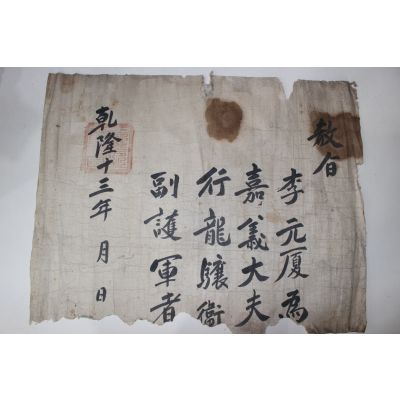 敎旨
李元厦為
嘉義大夫
行龍驤衛
副護軍者
乾隆十三年 月 日